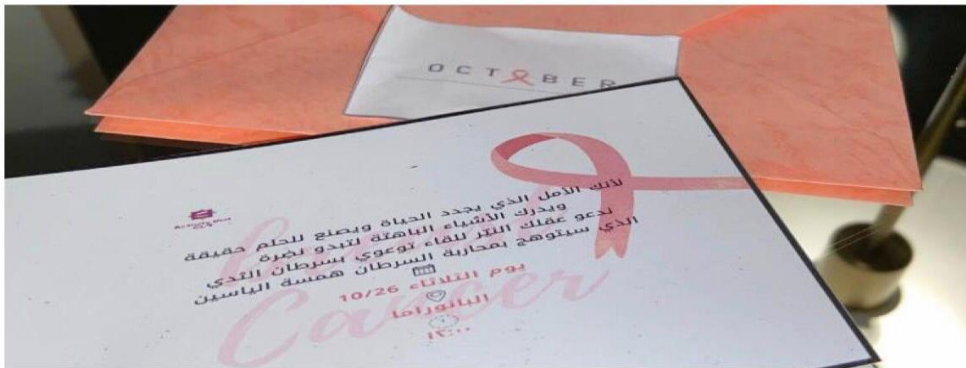 OCTOBER
لأنك الأمل الذي يجدد الحياة ويصنع للحلم حقيقة
ويدرك الأشياء الباهتة لتبدو نضرة
ندعو عقلك النيّر للقاء توعوي بسرطان الثدي
الذي سيتوهج بمحاربة السرطان همسة الياسين
يوم الثلاثاء 10/26
البانوراما
١٢:٠٠
Cancer